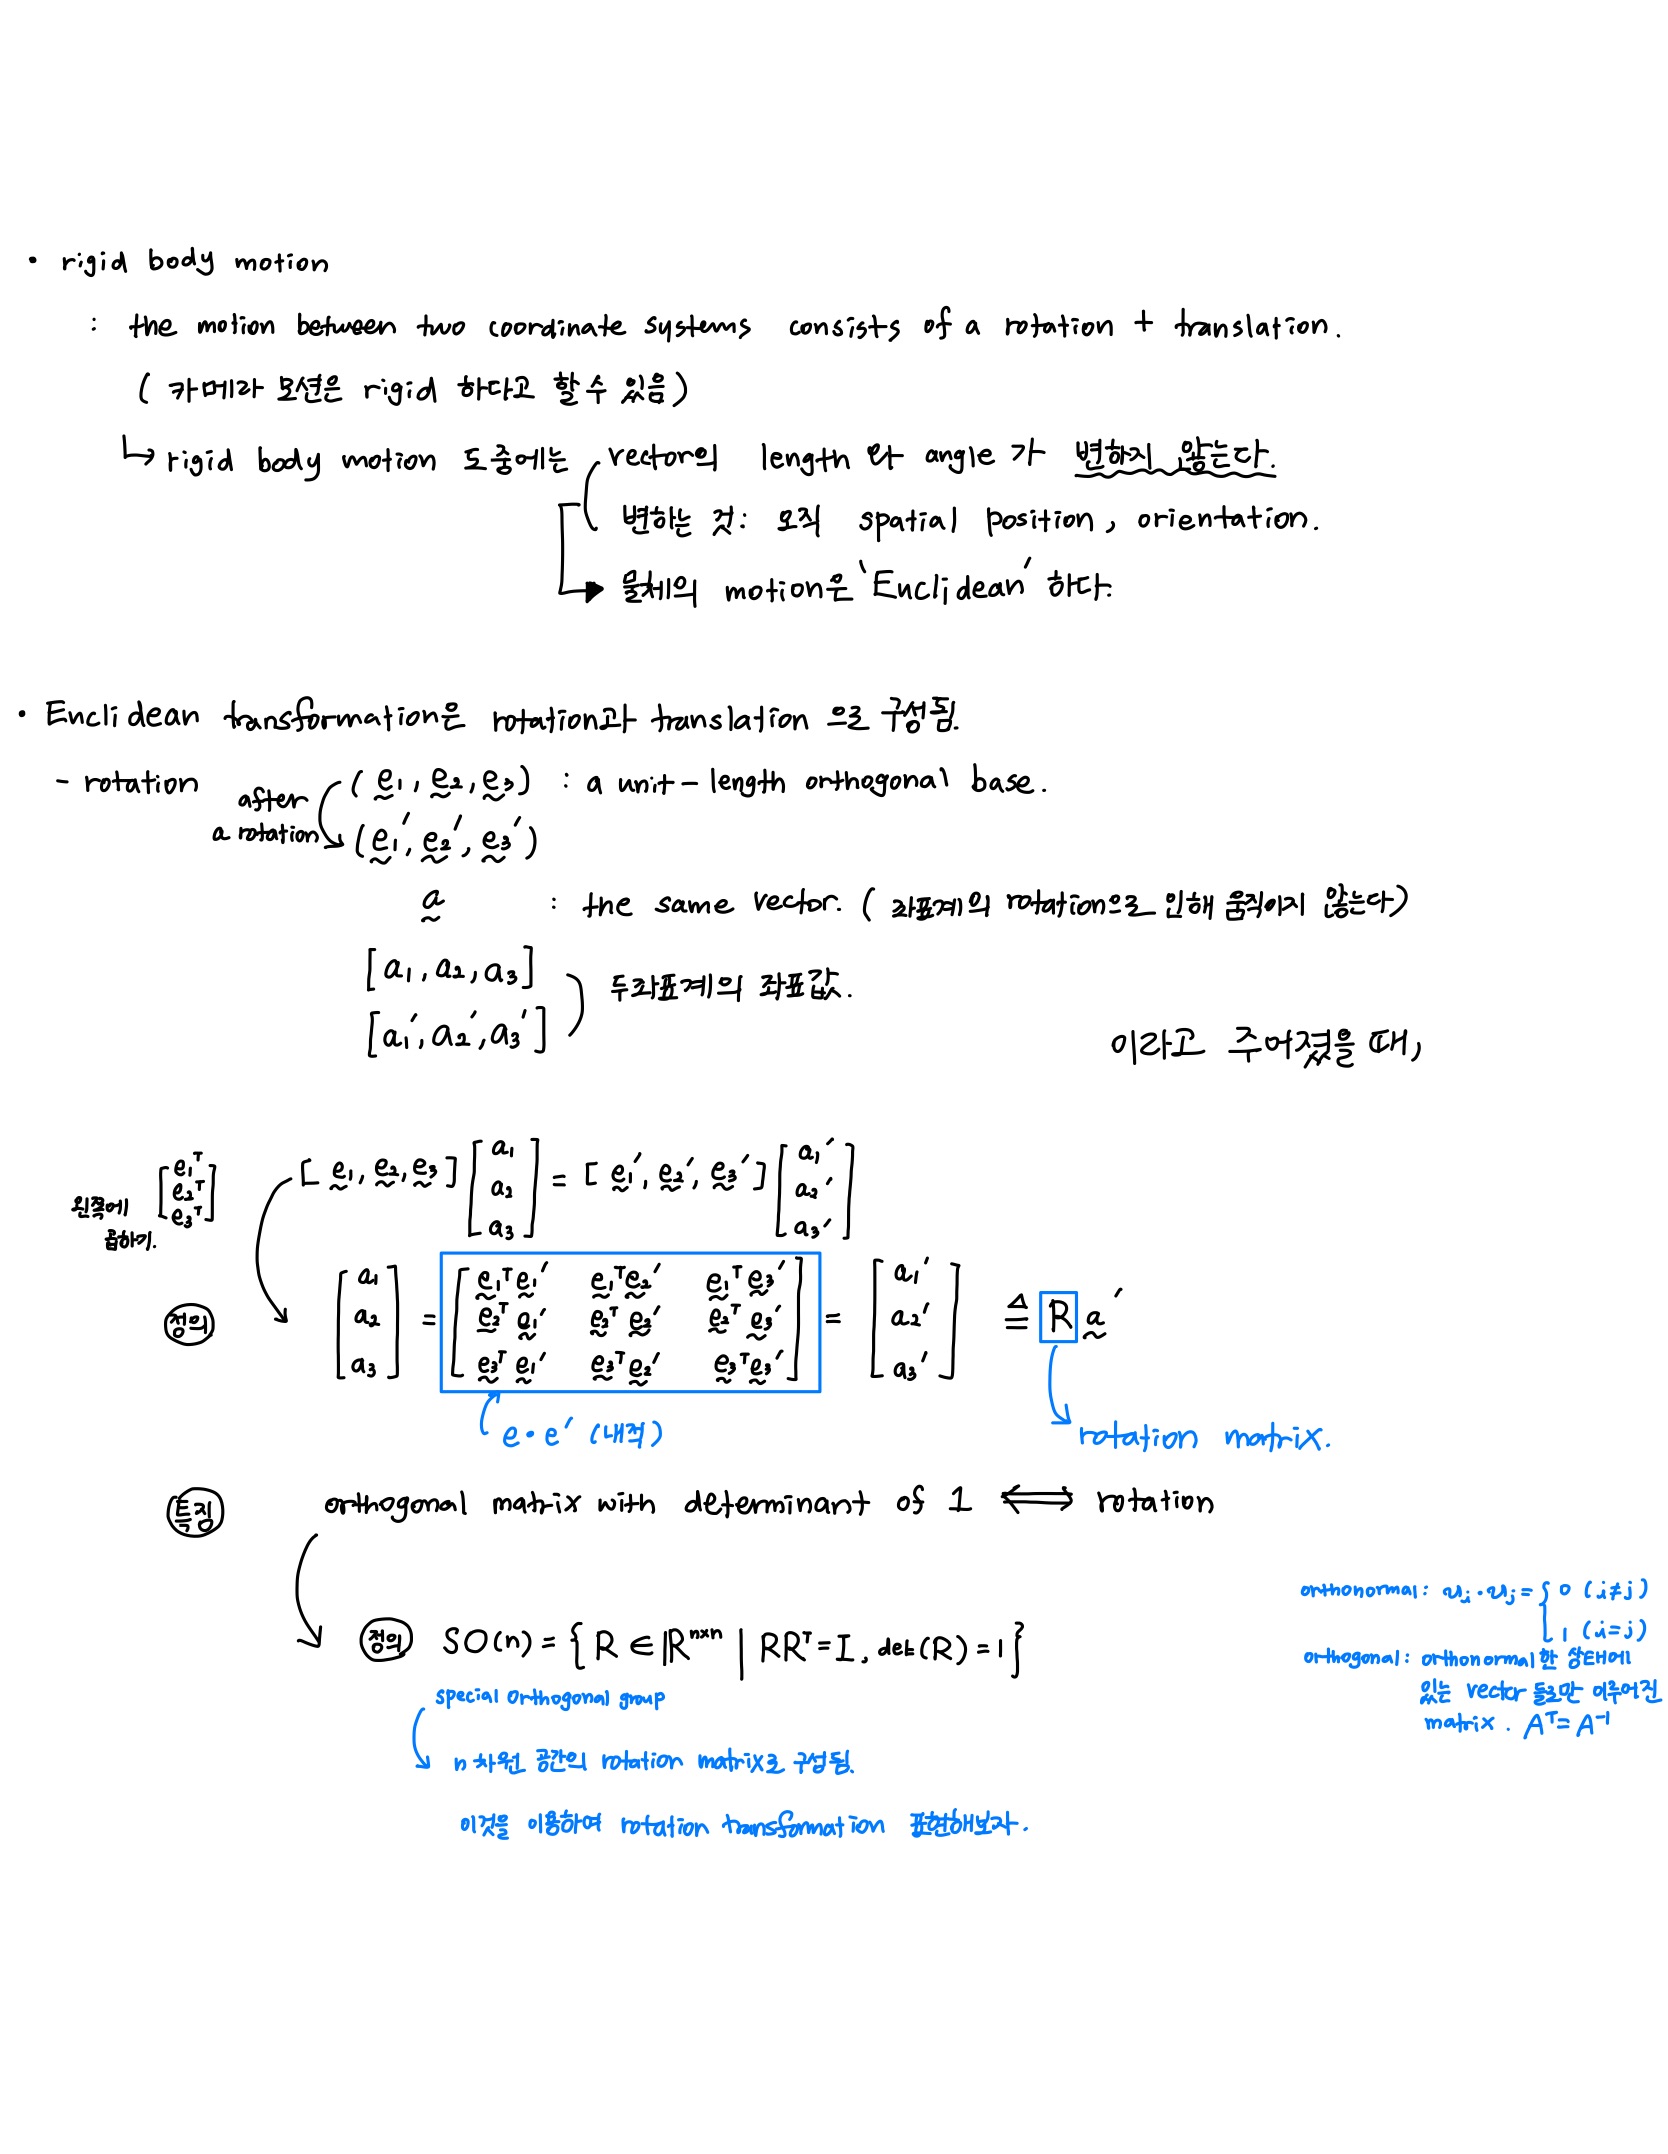 • rigid body motion
: the motion between two coordinate systems consists of a rotation + translation.
( 카메라 모션은 rigid 하다고 할 수 있음 )
↳ rigid body motion 도중에는 vector의 length 와 angle 가 변하지 않는다.
변하는 것: 오직 spatial position, orientation.
물체의 motion은 'Enclidean' 하다.
• Enclidean transformation은 rotation과 translation 으로 구성됨.
- rotation (e1, e2, e3) : a unit-length orthogonal base.
after
a rotation (e1', e2', e3')
a : the same vector. ( 좌표계의 rotation으로 인해 움직이지 않는다)
[a1, a2, a3]
두 좌표계의 좌표값.
[a1', a2', a3']
이라고 주어졌을 때,
왼쪽에 [e1ᵀ e2ᵀ e3ᵀ]
곱하기.
[e1, e2, e3] [a1 a2 a3] = [e1', e2', e3'] [a1' a2' a3']
정의 [a1 a2 a3] = [e1ᵀe1' e1ᵀe2' e1ᵀe3'
e2ᵀe1' e2ᵀe2' e2ᵀe3'
e3ᵀe1' e3ᵀe2' e3ᵀe3'] = [a1' a2' a3'] ≜ R a'
e • e' (내적)
rotation matrix.
특징 orthogonal matrix with determinant of 1 ⟺ rotation
정의 SO(n) = { R ∈ ℝⁿˣⁿ | RRᵀ = I, det(R) = 1 }
special orthogonal group
n 차원 공간의 rotation matrix로 구성됨.
이것을 이용하여 rotation transformation 표현해보자.
orthonormal: ui • uj = { 0 (i≠j)
1 (i=j)
orthogonal: orthonormal한 상태에
있는 vector 들로만 이루어진
matrix. Aᵀ = A⁻¹